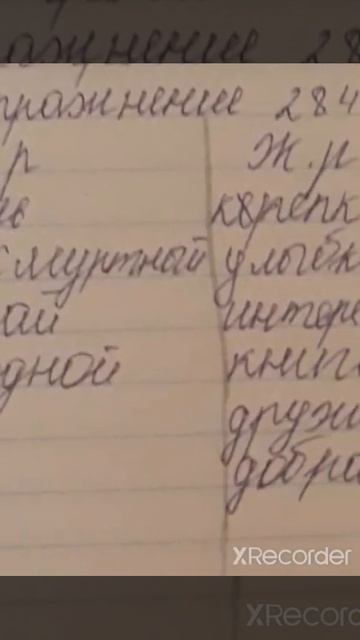 ражнение 28
пражнение 284
р Ж.р
ь крепк
смуртной улыбк
ой интере
дной книг
друж
добра
XRecorder
XRecorder